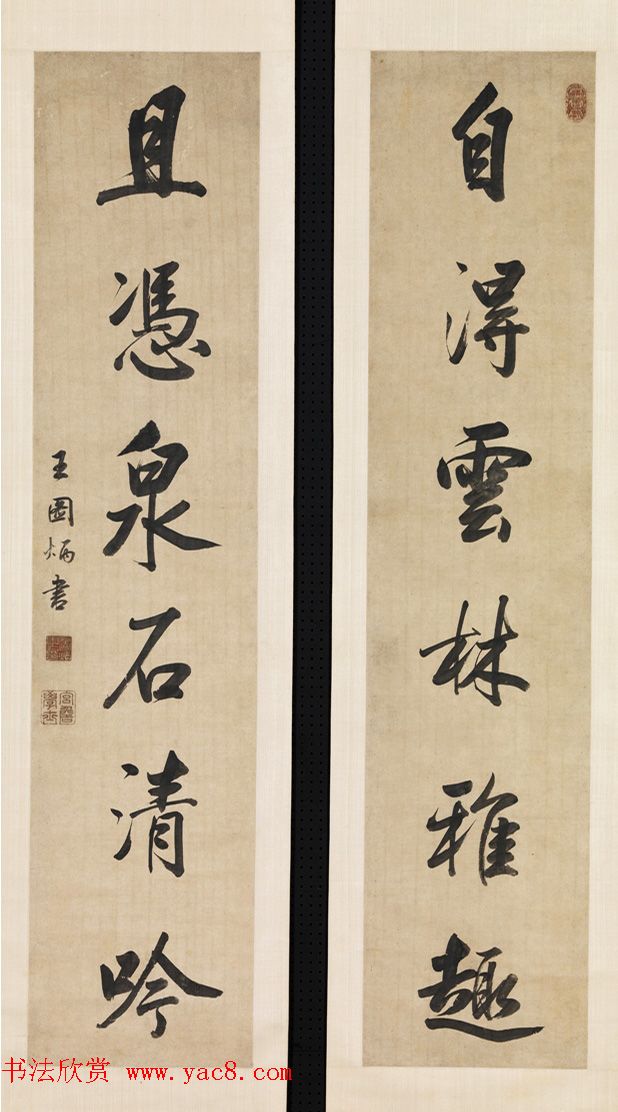 自得雲林雅趣
且憑泉石清吟
王圖炳書
书法欣赏 www.yac8.com